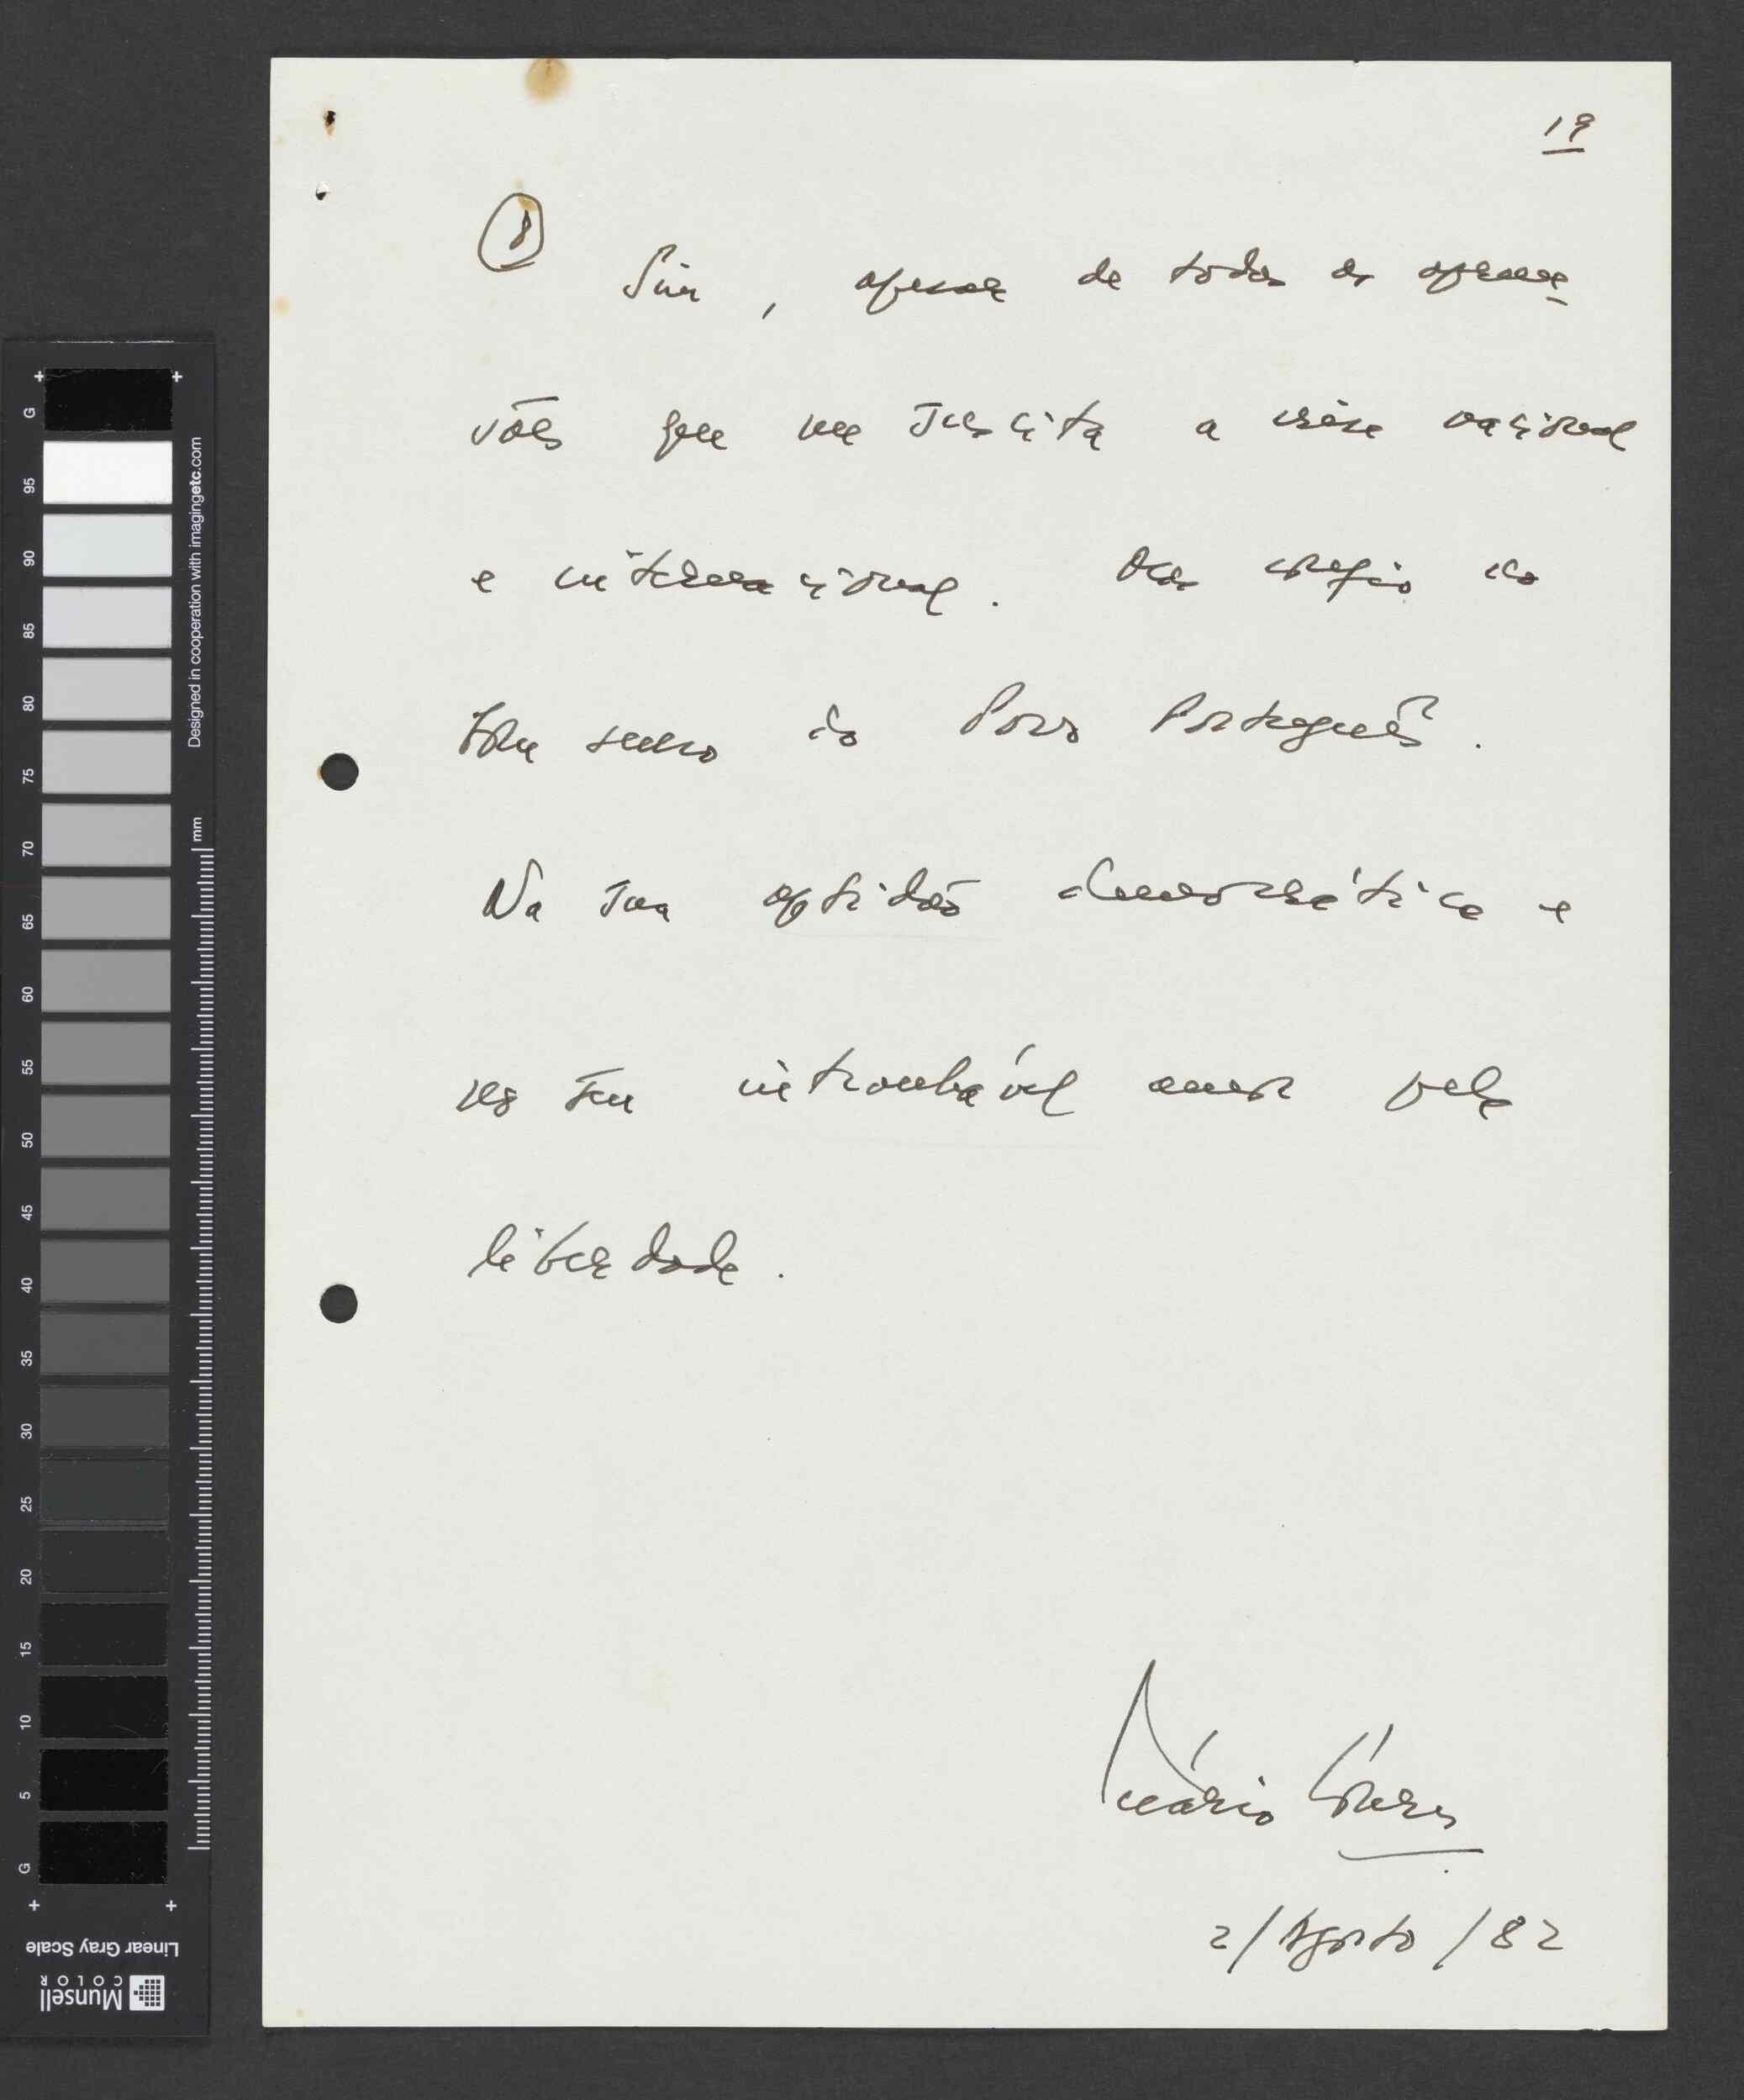 19
8 Sim, apesar de todas as apreen-
sões que me suscita a crise nacional
e internacional. Mas confio no
bom senso do Povo Português.
Na sua aptidão democrática e
no seu entranhável amor pela
liberdade.
Mário Soares
2/Agosto/82
G
95
90
85
80
75
70
65
60
55
50
45
40
35
30
25
20
15
10
5
G
Designed in cooperation with imagingetc.com
mm
Linear Gray Scale
Munsell
COLOR